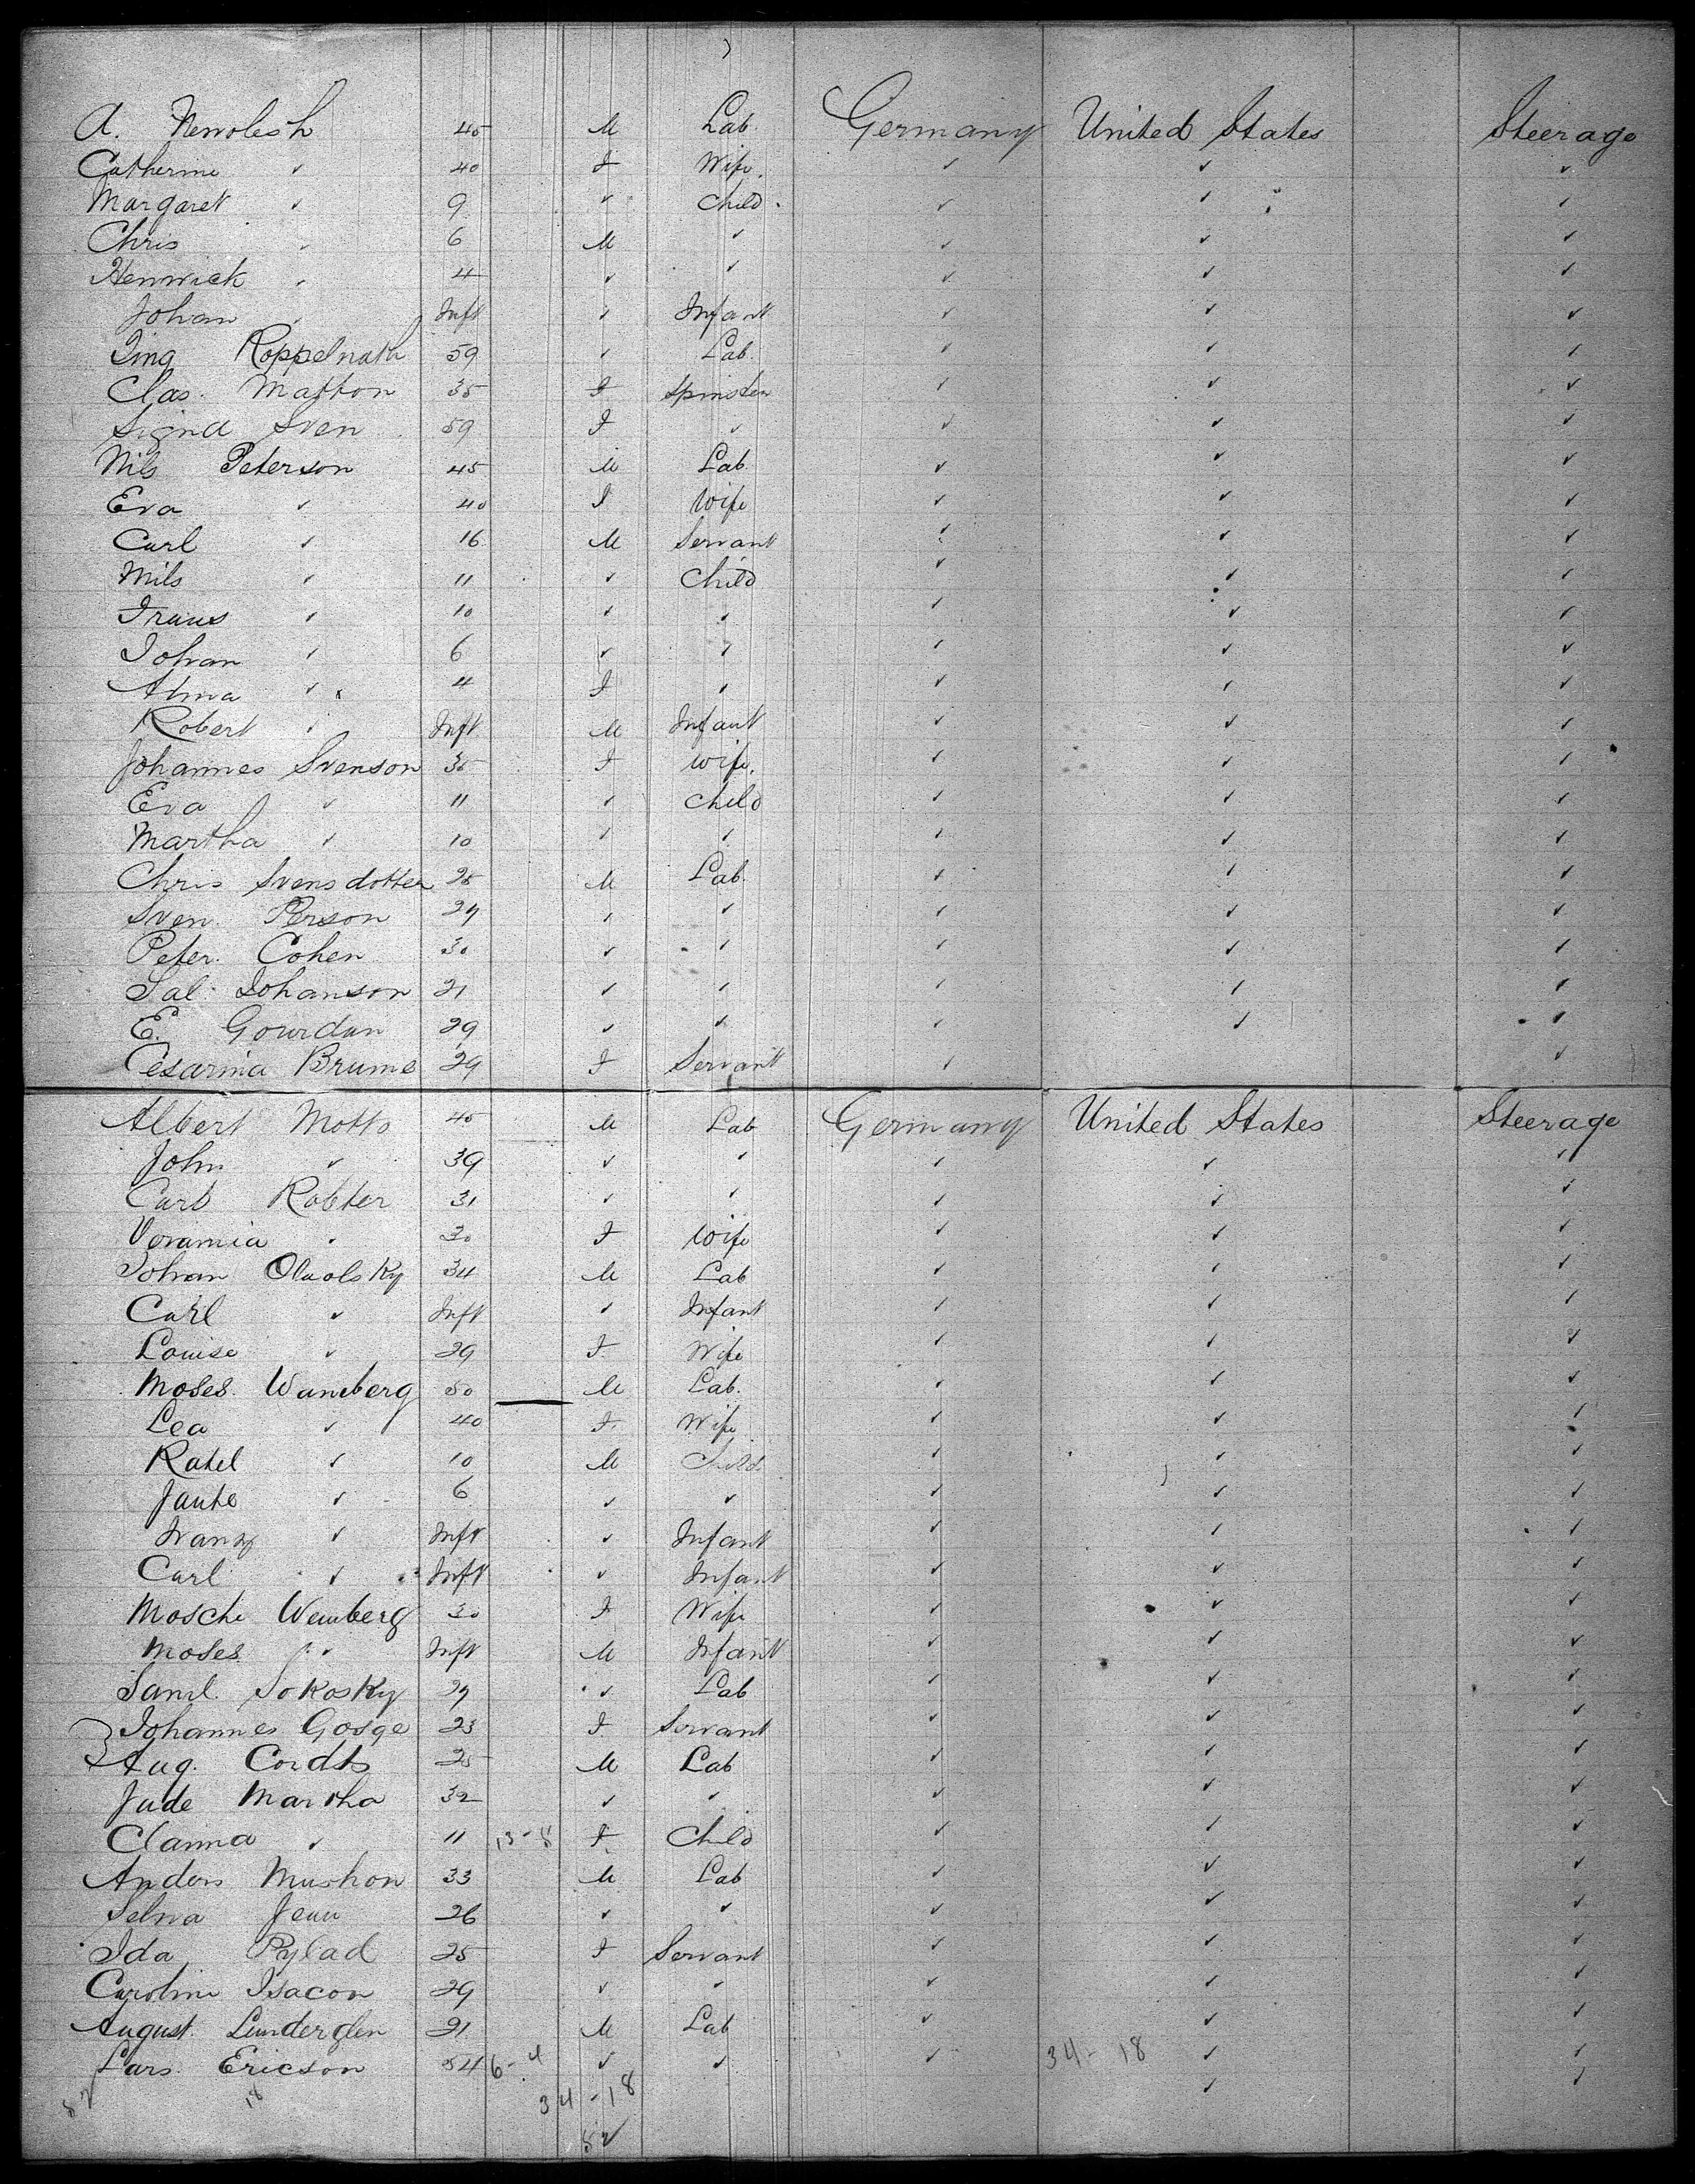 A. Newolesh 45 M Lab. Germany United States Steerage
Catherine " 40 F Wife. " " "
Margaret " 9 " Child. " " "
Chris " 6 M " " " "
Henwick " 4 " " " " "
Johan " Inft " Infant " " "
Ting Koppelnath 59 " Lab. " " "
Clas. Matton 35 F Spinster " " "
Signa Sven 59 F " " " "
Nils Peterson 45 M Lab " " "
Eva " 40 F Wife " " "
Carl " 16 M Servant " " "
Nils " 11 " Child " " "
Fraus " 10 " " " " "
Johan " 6 " " " " "
Alma " 4 F " " " "
Robert " Inft M Infant " " "
Johannes Svenson 35 F Wife. " " "
Eva " 11 " Child " " "
Martha " 10 " " " " "
Chris Svensdotter 25 M Lab. " " "
Sven. Person 24 " " " " "
Peter. Cohen 30 " " " " "
Sal. Johanson 21 " " " " "
E. Gourdan 29 " " " " "
Cesarina Brume 29 F Servant " "
Albert Motto 45 M Lab Germany United States Steerage
John " 39 " " " " "
Carl Robter 31 " " " " "
Voramia " 30 F Wife " " "
Johan Oluolsky 34 M Lab " " "
Carl " Inft " Infant " " "
Louise " 29 F Wife " " "
Moses. Wamberg 50 M Lab. " " "
Lea " 40 F Wife " " "
Ratel " 10 M Child " " "
Jante " 6 " " " " "
Franz " Inft " Infant " " "
Carl " Inft " Infant " " "
Mosche Wemberg 30 F Wife " " "
Moses " Inft M Infant " " "
Saml. Sokosky 24 " Lab " " "
Johannes Gosge 23 F Servant " " "
Aug. Cordts 25 M Lab " " "
Jude Martha 32 " " " " "
Clanna " 11 13-8 F Child " " "
Anders Mushon 33 M Lab " " "
Selma Jean 26 " " " " "
Ida Pylad 25 F Servant " " "
Caroline Isacon 29 " " " " "
August. Lunderglen 21 M Lab " " "
Lars. Ericson 54 6-4 " " " 34-18 " "
52 18 34-18 " "
52